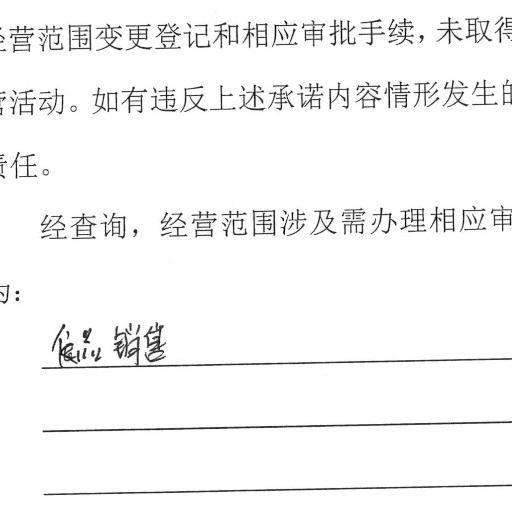 经营范围变更登记和相应审批手续，未取得
营活动。如有违反上述承诺内容情形发生的
责任。
经查询，经营范围涉及需办理相应审
为：
销售